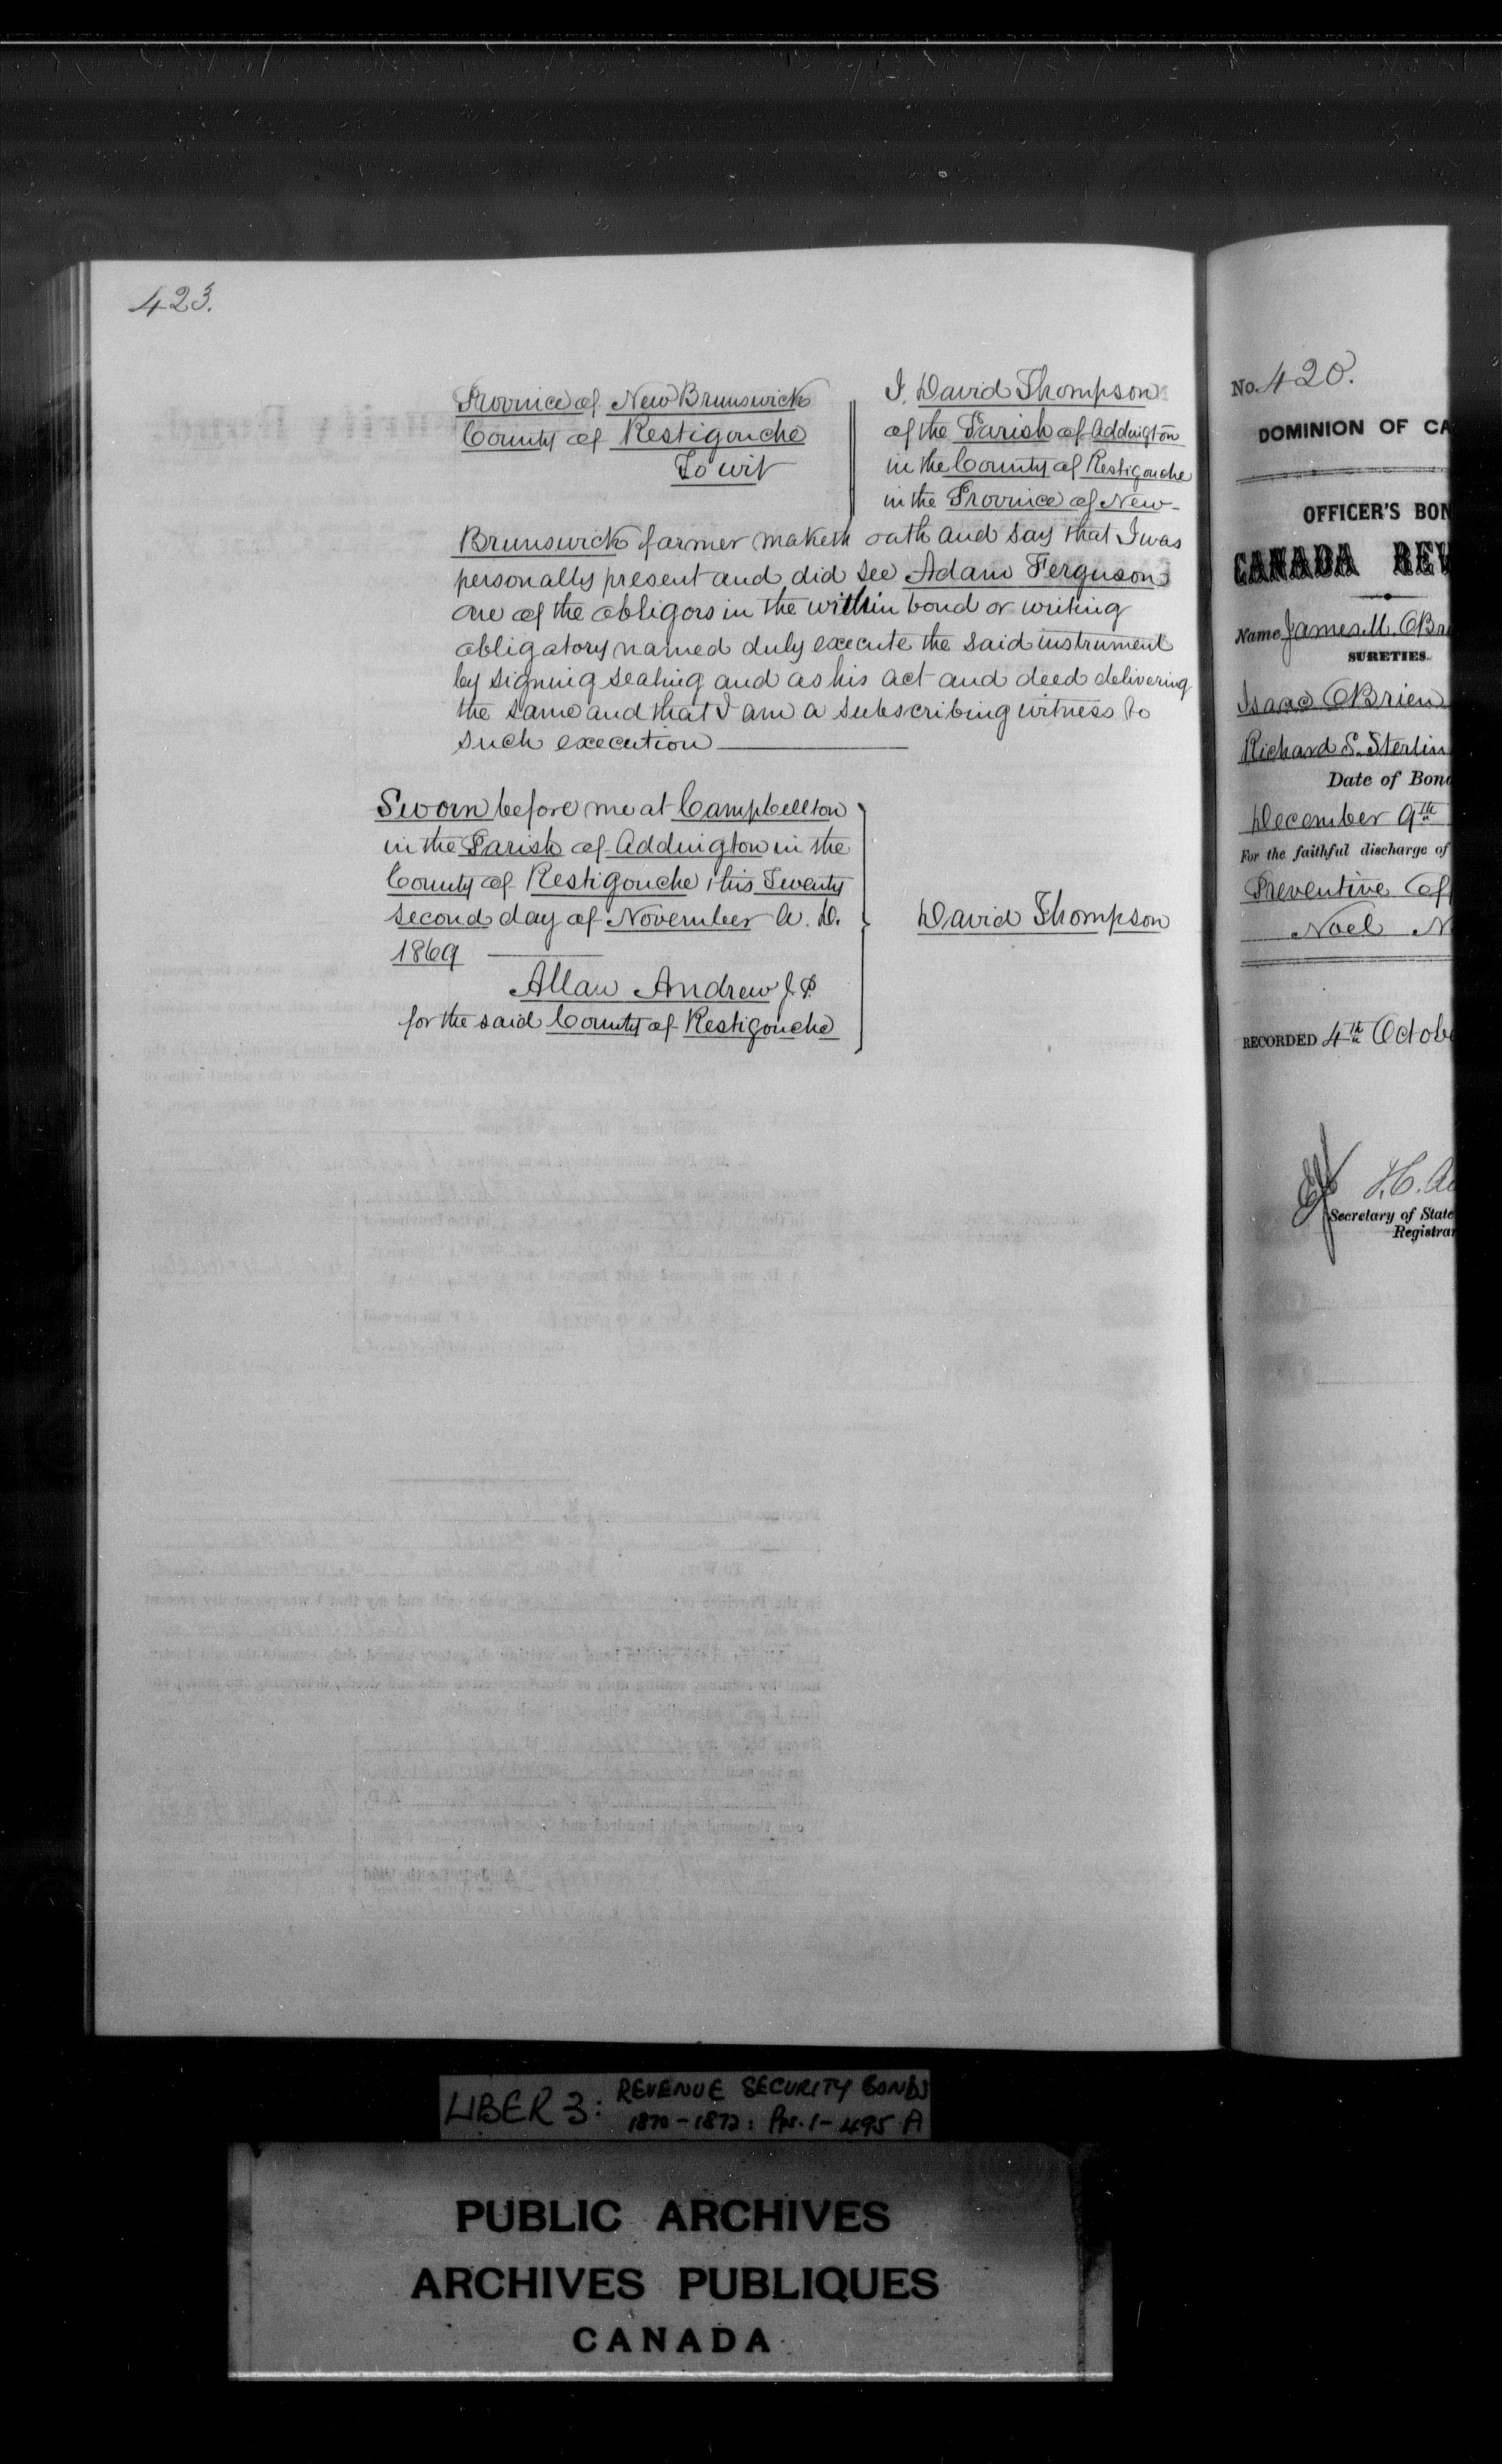 423.
Province of New Brunswick
County of Restigouche
To wit
I, David Thompson
of the Parish of Addington
in the County of Restigouche
in the Province of New-
Brunswick farmer maketh oath and say that I was
personally present and did see Adam Ferguson
one of the obligors in the within bond or writing
obligatory named duly execute the said instrument
by signing sealing and as his act and deed delivering
the same and that I am a subscribing witness to
such execution
Sworn before me at Campbellton
in the Parish of Addington in the
County of Restigouche this Twenty
second day of November A. D.
1869
Allan Andrew J.P.
for the said County of Restigouche
David Thompson
No. 420.
DOMINION OF CA
OFFICER'S BON
CANADA REV
Name James M. OBri
SURETIES.
Isaac OBrien
Richard S. Sterlin
Date of Bond
December 9th
For the faithful discharge of
Preventive Off
Noel N
RECORDED 4th Octobe
Secretary of State
Registrar
LIBER 3: REVENUE SECURITY BONDS
1870-1872: Pps. 1-495 A
PUBLIC ARCHIVES
ARCHIVES PUBLIQUES
CANADA